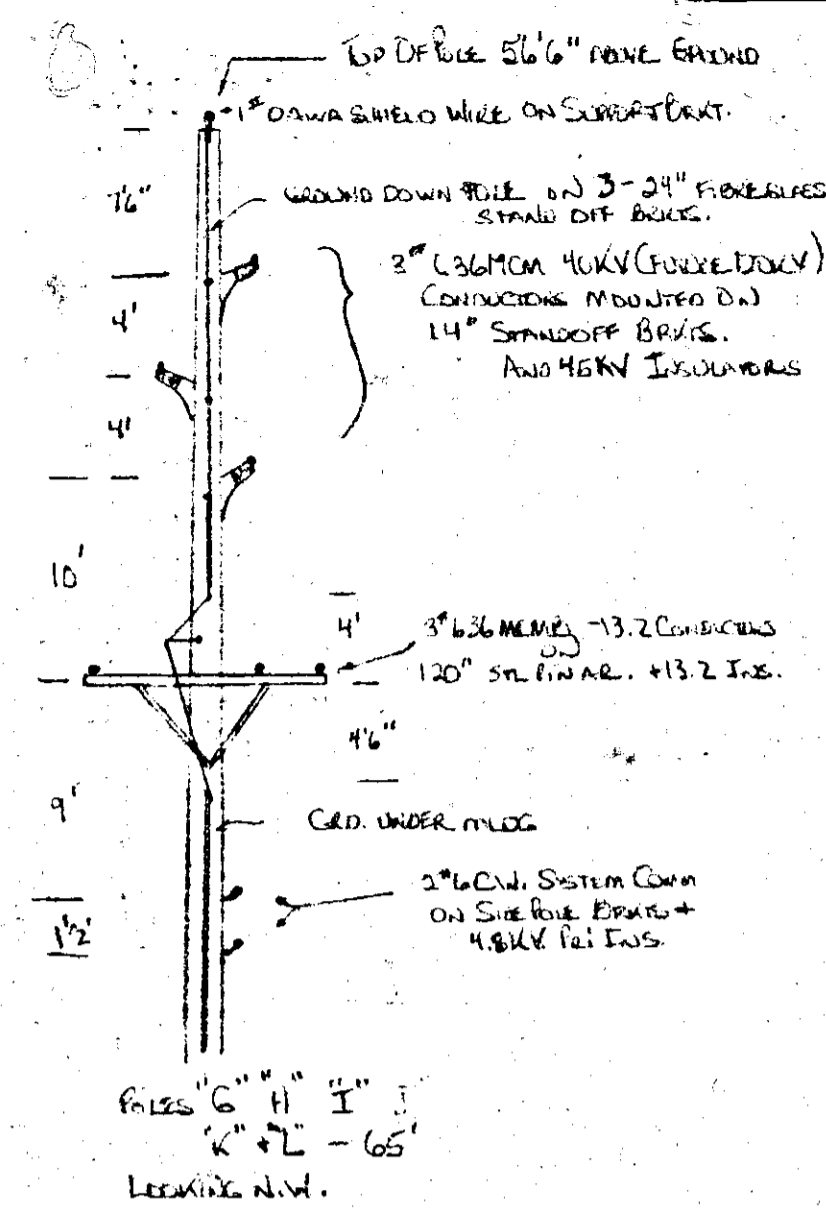 TOP OF POLE 56'6" ABOVE GROUND
1# DAWA SHIELD WIRE ON SUPPORT BRKT.
7'6"
GROUND DOWN POLE ON 3-24" FIBREGLASS
STAND OFF BRKTS.
3# 636MCM 40KV (FUTURE 120KV)
CONDUCTORS MOUNTED ON
14" STANDOFF BRKTS.
AND 45KV INSULATORS
4'
4'
10'
4'
3# 636 MCM -13.2 CONDUCTORS
ON
120" STL PIN AR. +13.2 INS.
4'6"
9'
GRD. UNDER MLDG
2#6 C.W. SYSTEM COMM
ON SIDE POLE BRKTS +
4.8KV PRI INS.
1 1/2'
POLES "G" "H" "I" J
"K" + "L" - 65'
LOOKING N.W.